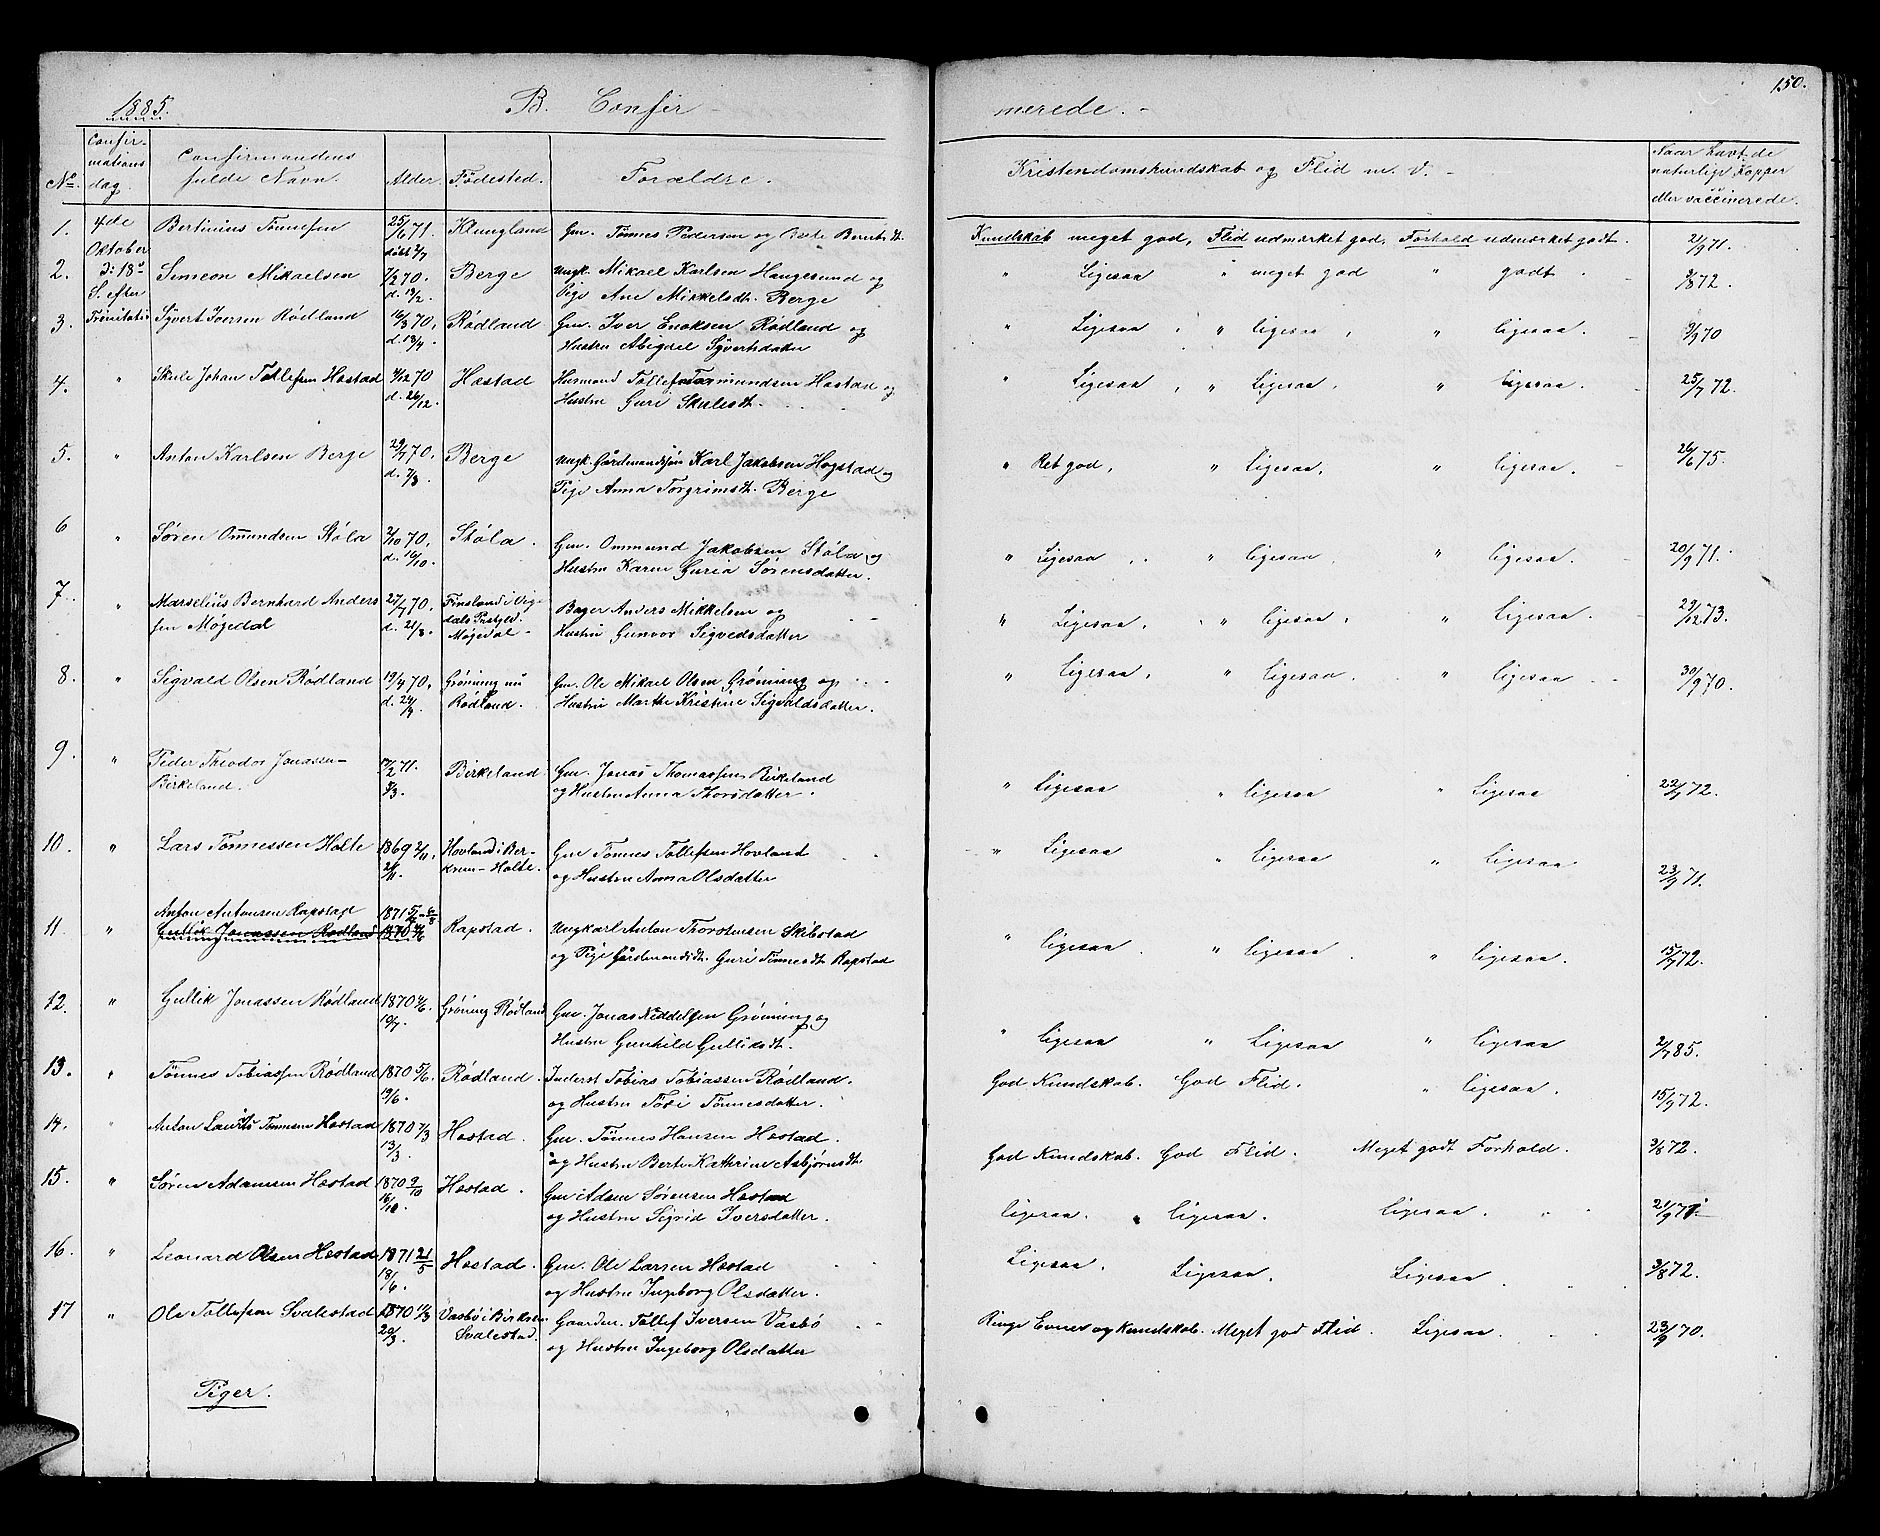 150.
1885.
B. Confirmerede. -
No. Confirmations dag. Confirmandens fulde Navn. Alder. Fødested. Forældre. Kristendomskundskab og Flid m. v. Naar havt de naturlige Kopper eller vaccinerede.
1. 4de Oktober Bertinius Tønnesen 25/6 71. Klungland Gm. Tønnes Pedersen og Kundskab meget god, Flid udmærket god, Forhold udmærket godt. 21/9 71.
2. D: 18de S. efter Simeon Mikaelsen 7/2 70. d. 13/2. Berge Ungk. Mikael Karlsen Haugesund og " Ligesaa " meget god " godt 9/8 72.
Pige Ane Mikkelsdt. Berge
3. Trinitatis Syvert Iversen Rødland 16/3 70, d. 13/4. Rødland Gm. Iver Enoksen Rødland og " Ligesaa " ligesaa, " ligesaa. 9/9 70
Hustru Abigael Syvertsdatter
4. " Skule Johan Tollefsen Hæstad 4/12 70 d. 26/12. Hæstad Husmand Tollef Hæstad og " Ligesaa, " Ligesaa, " Ligesaa. 25/7 72.
Hustru Guri Skulesdt.
5. " Anton Karlsen Berge 29/7 70. d. 7/8. Berge Ungk. Gårdmandssøn Karl Jakobsen Høgstad og " Ret god, " Ligesaa, " ligesaa. 26/6 75.
Pige Anna Torgrimsdt. Berge
6 " Søren Ommundsen Støla 2/10 70. d. 16/10. Støla. Gm. Ommund Jakobsen Støla og " Ligesaa " ligesaa, " ligesaa. 20/9 71.
Hustru Karen Guria Sørensdatter.
7. " Marselius Bernhard Andersen Møgedal 27/7 70. d. 21/8. Finsland i Møgedal - Bager Anders Mikkelsen og " Ligesaa, " ligesaa, " Ligesaa. 29/12 73.
Hustru Gunvor Sigvedsdatter
8. " Sigvald Olsen Rødland 19/4 70. d. 24/4. Grøning nu Rødland. Gm. Ole Mikael Olsen Grøning og " Ligesaa, " Ligesaa. " ligesaa 30/9 70.
Hustru Marthe Kristine Sigvaldsdatter.
9. " Peder Theodor Jonassen Birkeland. 17/2 71. 5/3. Birkeland. Gm. Jonas Thomassen Birkeland " Ligesaa " ligesaa " Ligesaa 22/7 72.
og Hustru Anna Thorsdatter.
10. " Lars Tønnessen Holte 1869 2/11. 21/11. Hovland i Berkrem - Holte. Gm Tønnes Tollefsen Hovland " Ligesaa " Ligesaa " Ligesaa 23/9 71.
og Hustru Anna Olsdatter
Anton Antonsen Rapstad
11. " Gullik Jonassen Rødland Rapstad. Ungkarl Anton Thorstensen Skibstad " ligesaa " ligesaa. " ligesaa. 15/7 72.
og Pige Gårdmandsdt. Guri Tønnesdt Rapstad
12. " Gullik Jonassen Rødland 1870 4/6. 10/7. Grøning Rødland Gm. Jonas Neddelsen Grøning og " ligesaa " Ligesaa " ligesaa 2/7 85.
Hustru Gunhild Gulliksdt.
13. " Tønnes Tobiassen Rødland 1870 5/6. 19/6. Rødland. Inderst Tobias Tobiassen Rødland. God Kundskab. God Flid. " ligesaa. 15/7 72.
og Hustru Tøri Tønnesdatter.
14. " Anton Laurits Tønnesen Hæstad 1870 7/3 13/3. Hæstad. Gm. Tønnes Hansen Hæstad. God Kundskab. God Flid. Meget godt Forhold. 3/8 72.
og Hustru Berte Kathrine Asbjørnsdt
15. " Søren Adamsen Hæstad 1870 9/10 16/10. Hæstad. Gm Adam Sørensen Hæstad ligesaa. " ligesaa. Ligesaa. 21/9 71.
og Hustru Sigrid Iversdatter.
16. " Leonard Olsen Hæstad 1871 21/5 18/6. Hæstad. Gm. Ole Larsen Hæstad Ligesaa. Ligesaa. Ligesaa. 3/8 72.
og Hustru Ingeborg Olsdatter.
17 " Ole Tollefsen Svalestad 1870 11/3 20/3. Vasbø i Svalestad. Gaardm. Tollef Iversen Vasbø Ringe Evner og Kundskab. Meget god Flid. Ligesaa. 23/9 70.
og Hustru Ingeborg Olsdatter
Piger.